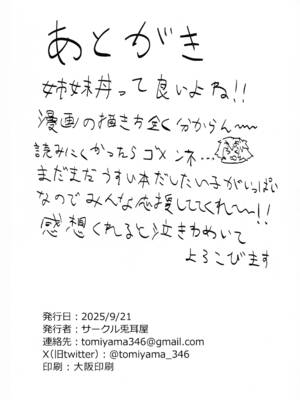 あとがき
姉妹丼って良いよね!!
漫画の描き方全く分からん〜〜
読みにくかったらゴメンネ...
まだまだうすい本だしたい子がいっぱい
なのでみんな応援してくれ〜〜!!
感想くれると泣きわめいて
よろこびます
発行日：2025/9/21
発行者：サークル兎耳屋
連絡先：tomiyama346@gmail.com
X(旧twitter)：@tomiyama_346
印刷：大阪印刷